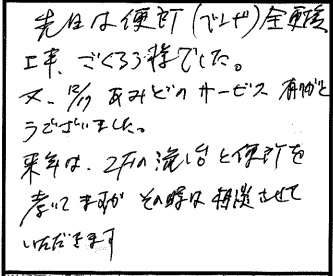 先日は便所(でしゃ)全更換
工事、ごくろう様でした。
又、12/17 あみどのサービス 有がと
うございました。
来年は、2Fの流し台と便所を
考いてますが その時は相談させて
いただきます